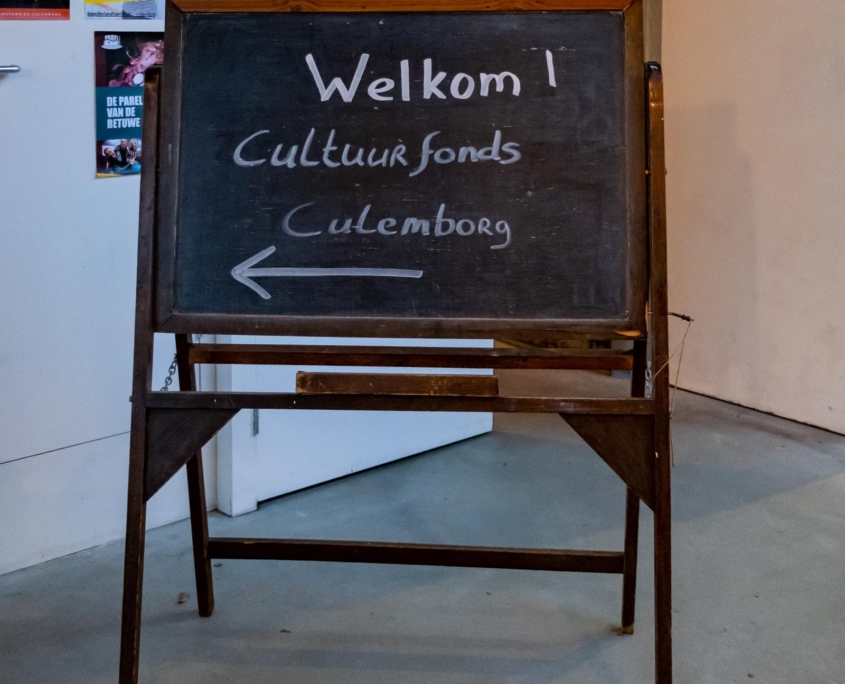 Welkom !
Cultuurfonds
Culemborg
DE PAREL
VAN DE
BETUWE